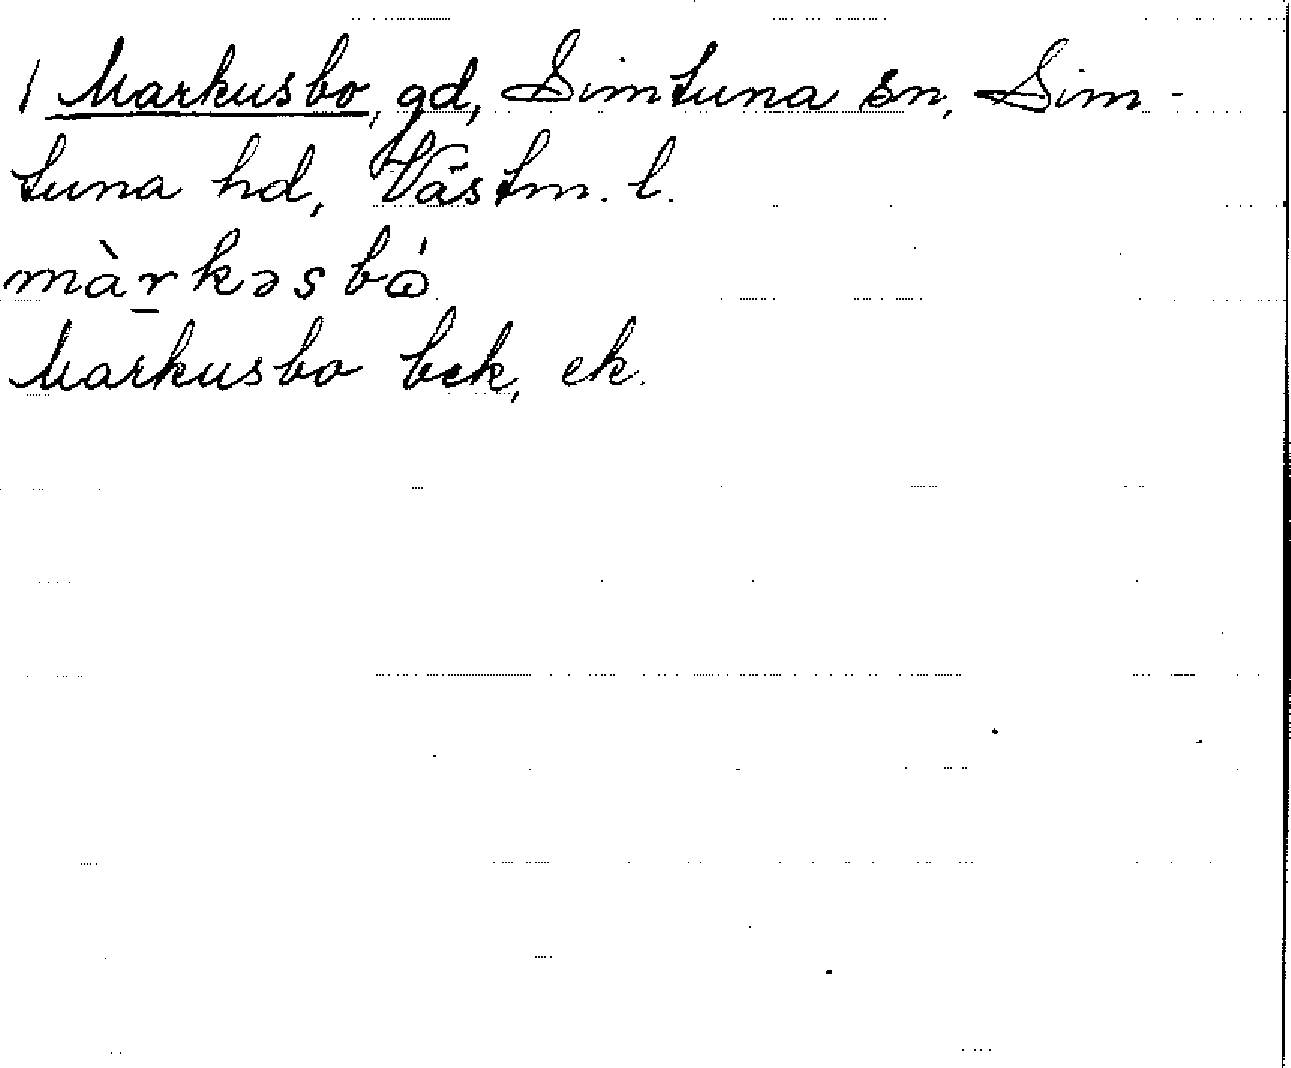 1 Markusbo, gd, Simtuna sn, Sim-
tuna hd, Västm. l.
màr̲kəsbɷ́
Markusbo bek, ek.